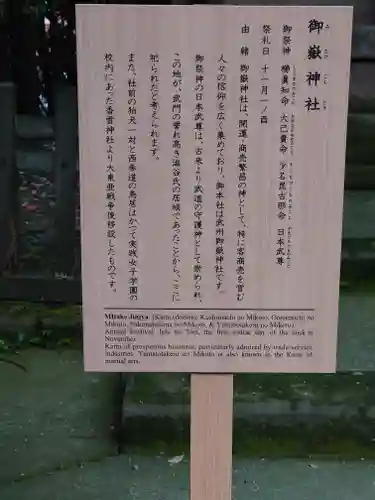 御嶽神社
みたけじんじゃ
御祭神 櫛眞知命 大己貴命 少名毘古那命 日本武尊
祭礼日 十一月一ノ酉
由緒 御嶽神社は、開運・商売繁昌の神として、特に客商売を営む
人々の信仰を広く集めており、御本社は武州御嶽神社です。
御祭神の日本武尊は、古来より武道の守護神として崇められ、
この地が、武門の誉れ高き渋谷氏の居城であったことから、ここに
祀られたと考えられます。
また、社前の狛犬一対と西参道の鳥居はかつて実践女子学園の
校内にあった香雪神社より大東亜戦争後移設したものです。
Mitake Jinjya (Kami (deities); Kushimachi no Mikoto, Oonamuchi no
Mikoto, Sukunahikona no Mikoto, & Yamatotakeru no Mikoto)
Annual festival: Ichi no Tori, the first zodiac day of the cock in
November
Kami of prosperous business, particularly admired by trade/service
industries. Yamatotakeru no Mikoto is also known as the Kami of
martial arts.